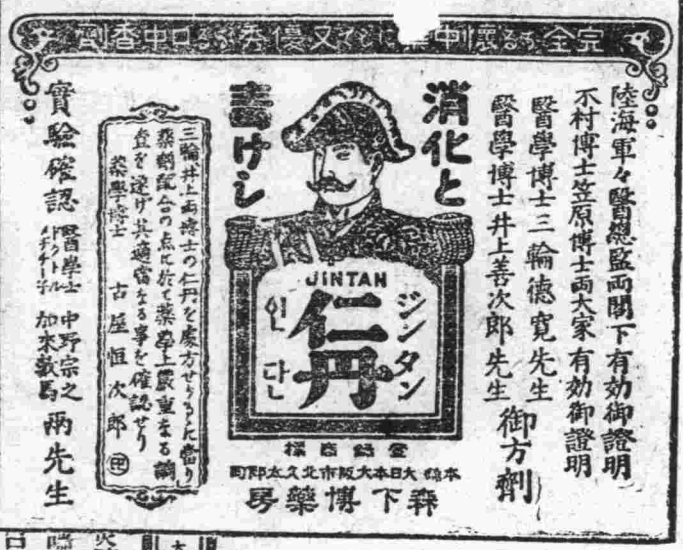 完全なる懷中藥にして又優秀なる口中香劑
陸海軍々醫總監両閣下有効御證明
木村博士笠原博士両大家有効御證明
醫學博士三輪德寛先生
醫學博士井上善次郎先生
御方劑
消化と
毒けし
JINTAN
ジンタン
仁丹
인단
登錄商標
本舖 大日本大阪市北久太郎町
森下博藥房
三輪、井上両博士の仁丹を處方せらるゝに當り
藥劑配合の点に於て藥學上嚴重なる調
査を遂げ其適當なる事を確認せり
藥學博士 古屋恒次郎 ㊞
實驗確認
醫學士 中野宗之
加來數馬
両先生